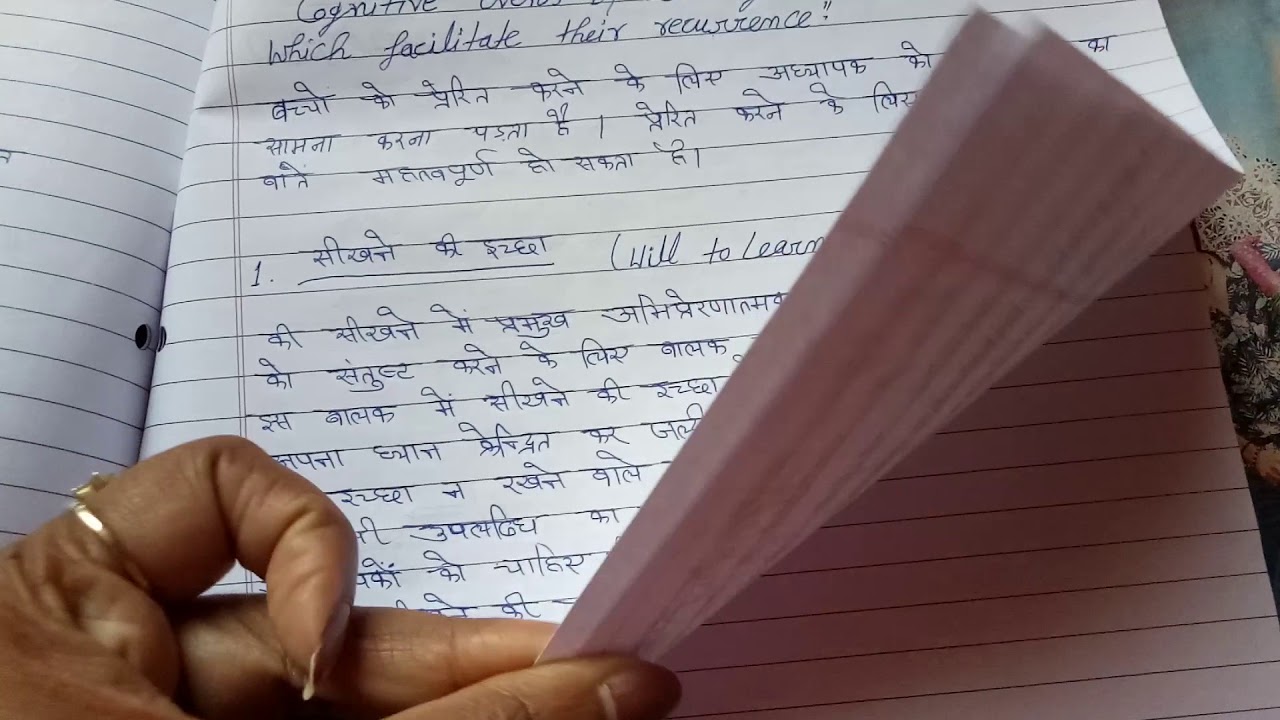 Cognitive
which facilitate their recurrence"
बच्चों को प्रेरित करने के लिए अध्यापक को का
सामना करना पड़ता है। प्रेरित करने के लिए
बातें महत्वपूर्ण हो सकता है।
1. सीखने की इच्छा (Will to Learn
की सीखने में प्रमुख अभिप्रेरणात्मक
को संतुष्ट करने के लिए बालक
इस बालक में सीखने की इच्छा
अपना ध्यान केन्द्रित कर जल्दी
इच्छा न रखने वाले
उपलब्धि का
को चाहिए
की